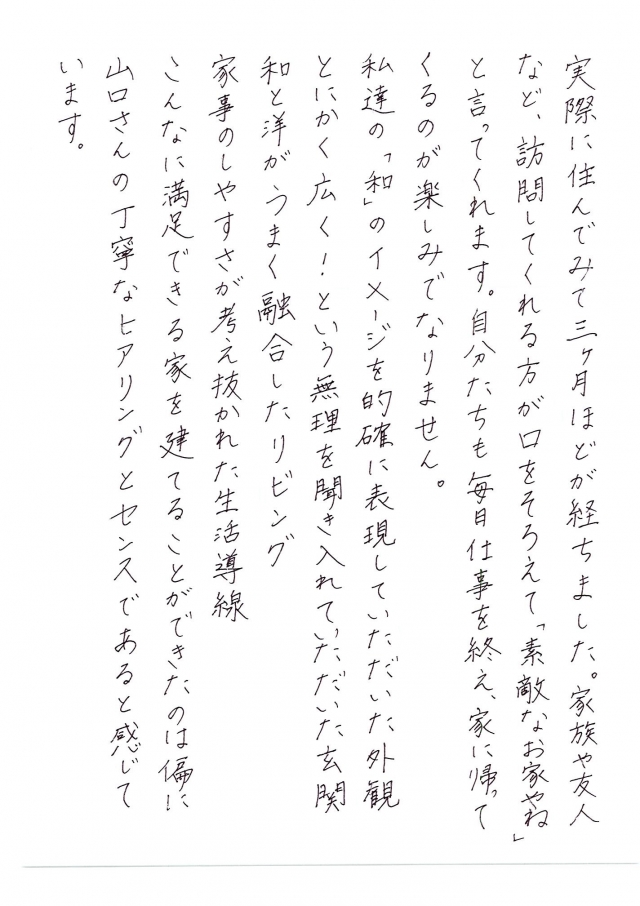 実際に住んでみて三ヶ月ほどが経ちました。家族や友人
など、訪問してくれる方が口をそろえて「素敵なお家やね」
と言ってくれます。自分たちも毎日仕事を終え、家に帰って
くるのが楽しみでなりません。
私達の「和」のイメージを的確に表現していただいた外観
とにかく広く！という無理を聞き入れていただいた玄関
和と洋がうまく融合したリビング
家事のしやすさが考え抜かれた生活導線
こんなに満足できる家を建てることができたのは偏に
山口さんの丁寧なヒアリングとセンスであると感じて
います。